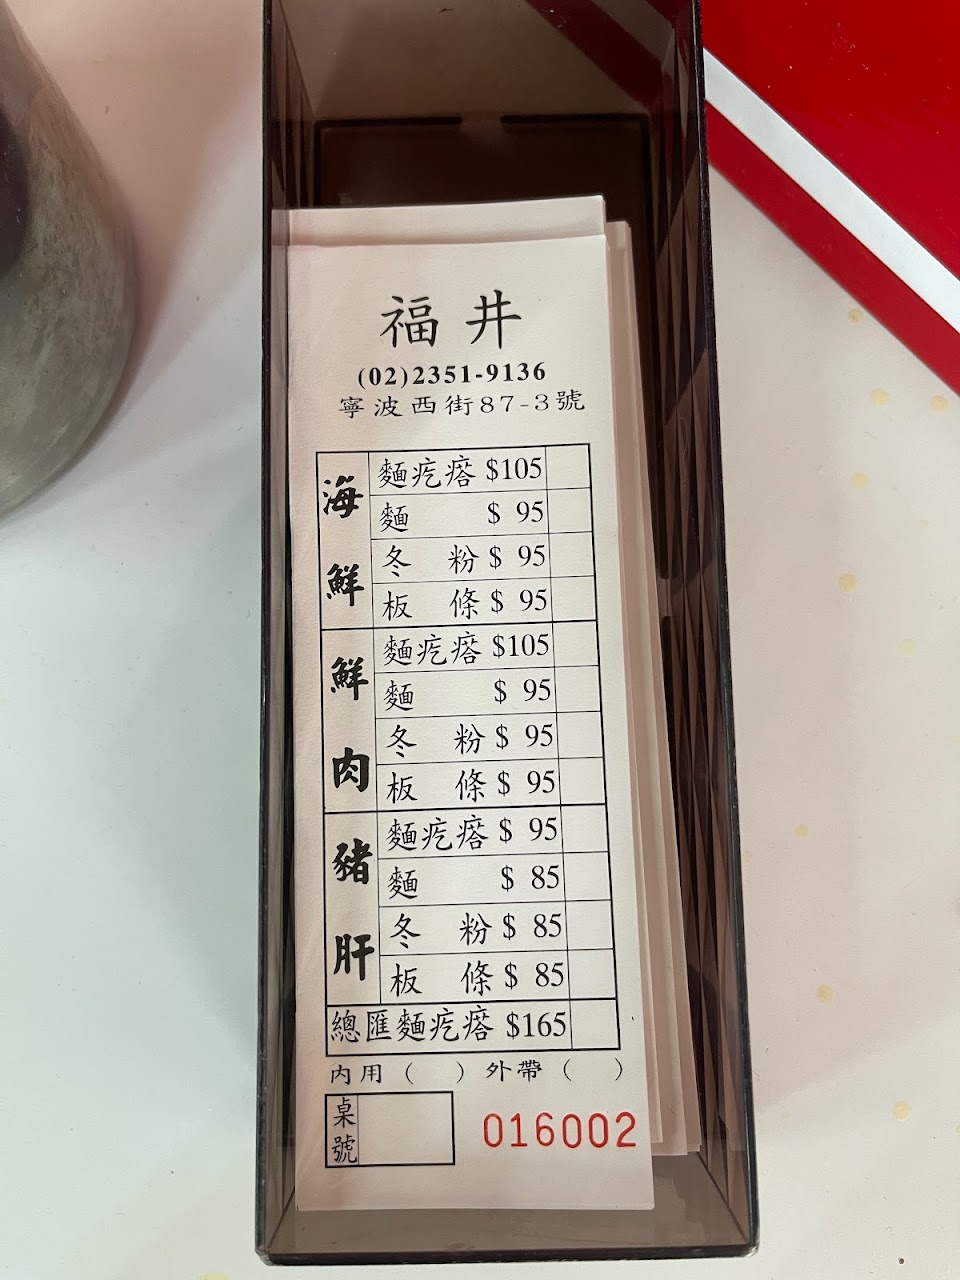 福井
(02)2351-9136
寧波西街87-3號
海鮮
麵疙瘩 $105
麵 $ 95
冬粉 $ 95
板條 $ 95
鮮肉
麵疙瘩 $105
麵 $ 95
冬粉 $ 95
板條 $ 95
豬肝
麵疙瘩 $ 95
麵 $ 85
冬粉 $ 85
板條 $ 85
總匯麵疙瘩 $165
內用（ ）外帶（ ）
桌號
016002